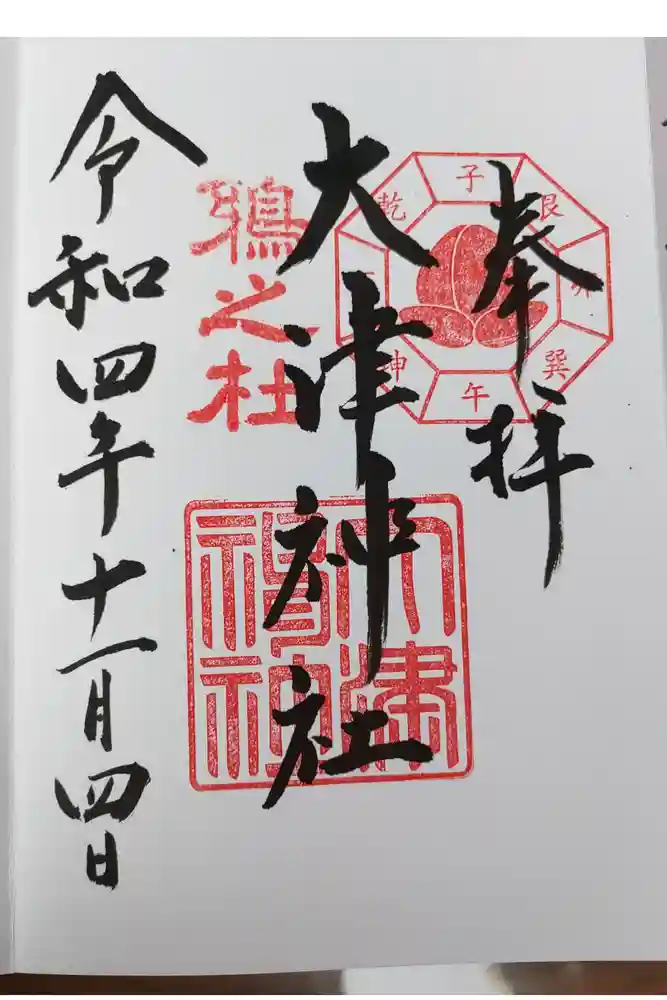 奉拝
子
艮
卯
巽
午
坤
乾
大津神社
之杜
大津神社
令和四年十一月四日